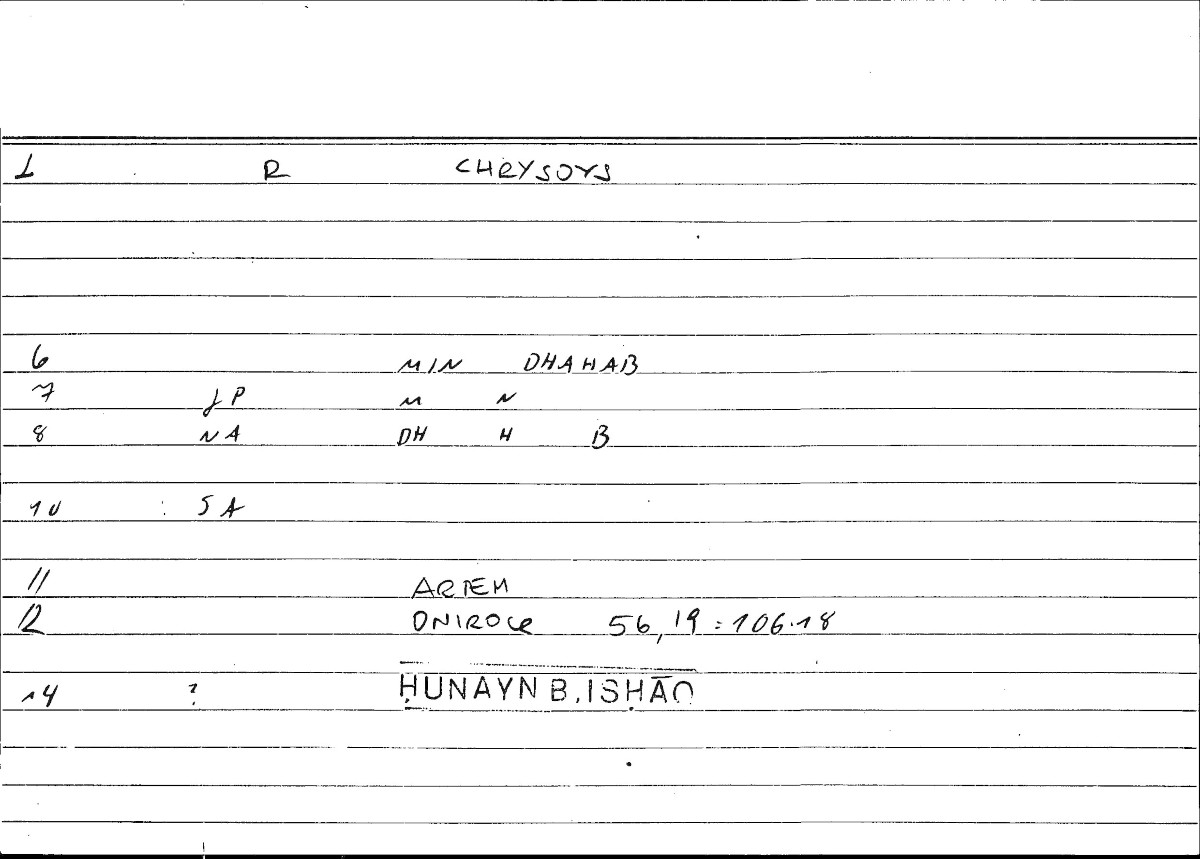 1 R CHRYSOYS
6 MIN DHAHAB
7 JP M N
8 NA DH H B
10 : SA
11 ARTEM
12 ONIROCR 56,19 = 106.18
14 ? ḤUNAYN B. ISḤĀQ